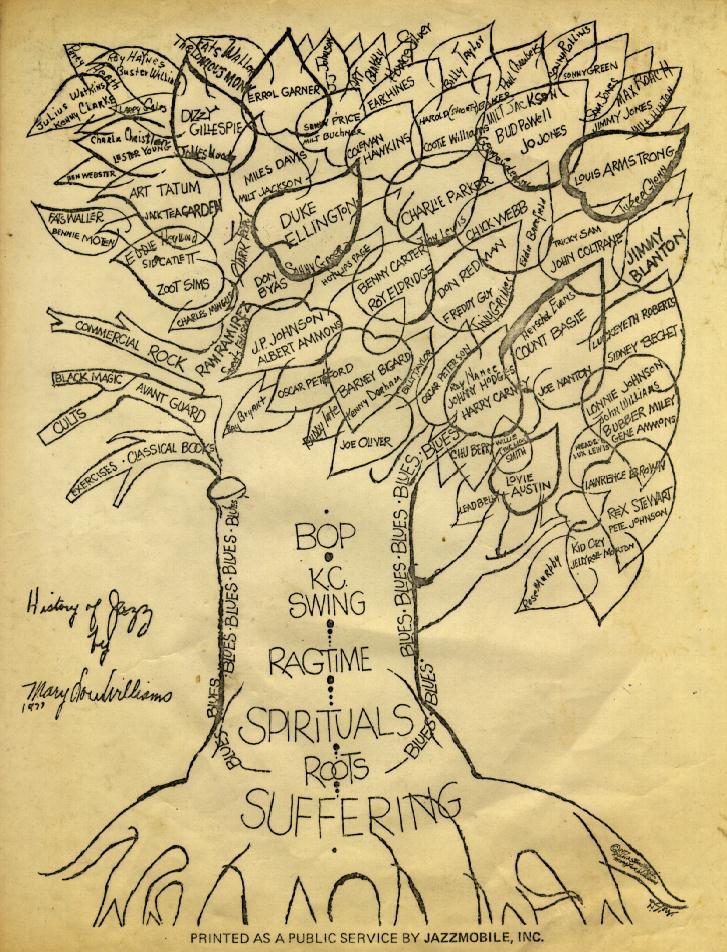 FATS WALLER
THELONIOUS MONK
ROY HAYNES
BUSTER WILLIAMS
JULIUS WATKINS
KENNY CLARKE
CHARLIE CHRISTIAN
LESTER YOUNG
BEN WEBSTER
DIZZY
GILLESPIE
James Moody
ERROL GARNER
SAMMY PRICE
MILT BUCHNER
EARL HINES
COLEMAN
HAWKINS
Horace Silver
Billy Taylor
Paul Chambers
Sonny Rollins
SONNY GREEN
SAM JONES
MAX ROACH
JIMMY JONES
COOTIE Williams
MILT JACKSON
BUD POWELL
JO JONES
LOUIS ARMSTRONG
ART TATUM
JACK TEAGARDEN
MILES DAVIS
MILT JACKSON
DUKE
ELLINGTON
CHARLIE PARKER
CHICK WEBB
FATS WALLER
BENNIE MOTEN
SID CATLETT
ZOOT SIMS
CHARLES MINGUS
DON
BYAS
HOT LIPS PAGE
BENNY CARTER
ROY ELDRIDGE
DON REDMAN
FREDDY GUY
TRICKY SAM
JOHN COLTRANE
JIMMY
BLANTON
Herschel Evans
COUNT BASIE
LUCKEYETH ROBERTS
SIDNEY BECHET
COMMERCIAL ROCK
RAM RAMIREZ
J.P. JOHNSON
ALBERT AMMONS
OSCAR PETTIFORD
BARNEY BIGARD
Kenny Dorham
OSCAR PETERSON
Ray Nance
JOHNNY HODGES
HARRY CARNEY
JOE NANTON
LONNIE JOHNSON
John Williams
BUBBER MILEY
GENE AMMONS
BLACK MAGIC
AVANT GUARD
CULTS
Ray Bryant
JOE OLIVER
CHU BERRY
WILLIE
SMITH
LOVIE
AUSTIN
LEADBELLY
MEADE
LUX LEWIS
LAWRENCE BROWN
REX STEWART
PETE JOHNSON
KID ORY
JELLYROLL MORTON
Rose Murphy
EXERCISES · CLASSICAL BOOKS
BLUES · BLUES · BLUES · BLUES
BLUES
BLUES
BLUES · BLUES · BLUES · BLUES · BLUES
BLUES
BLUES
BOP
K.C.
SWING
RAGTIME
SPIRITUALS
ROOTS
SUFFERING
History of Jazz
by
Mary Lou Williams
PRINTED AS A PUBLIC SERVICE BY JAZZMOBILE, INC.